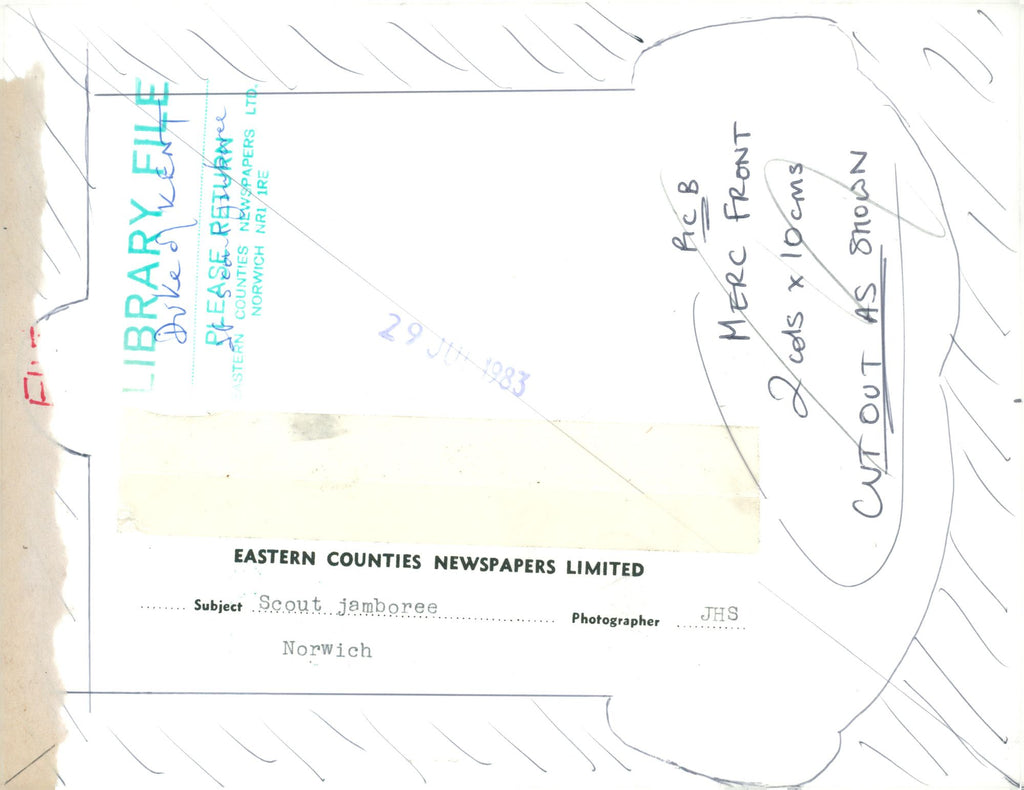 LIBRARY FILE
Duke of KENT
PLEASE RETURN
at scout jamboree
EASTERN COUNTIES NEWSPAPERS LTD.
NORWICH NR1 1RE
29 JUL 1983
Pic B
MERC FRONT
2 cols x 10cms
CUT OUT AS SHOWN
EASTERN COUNTIES NEWSPAPERS LIMITED
Subject Scout jamboree Photographer JHS
Norwich